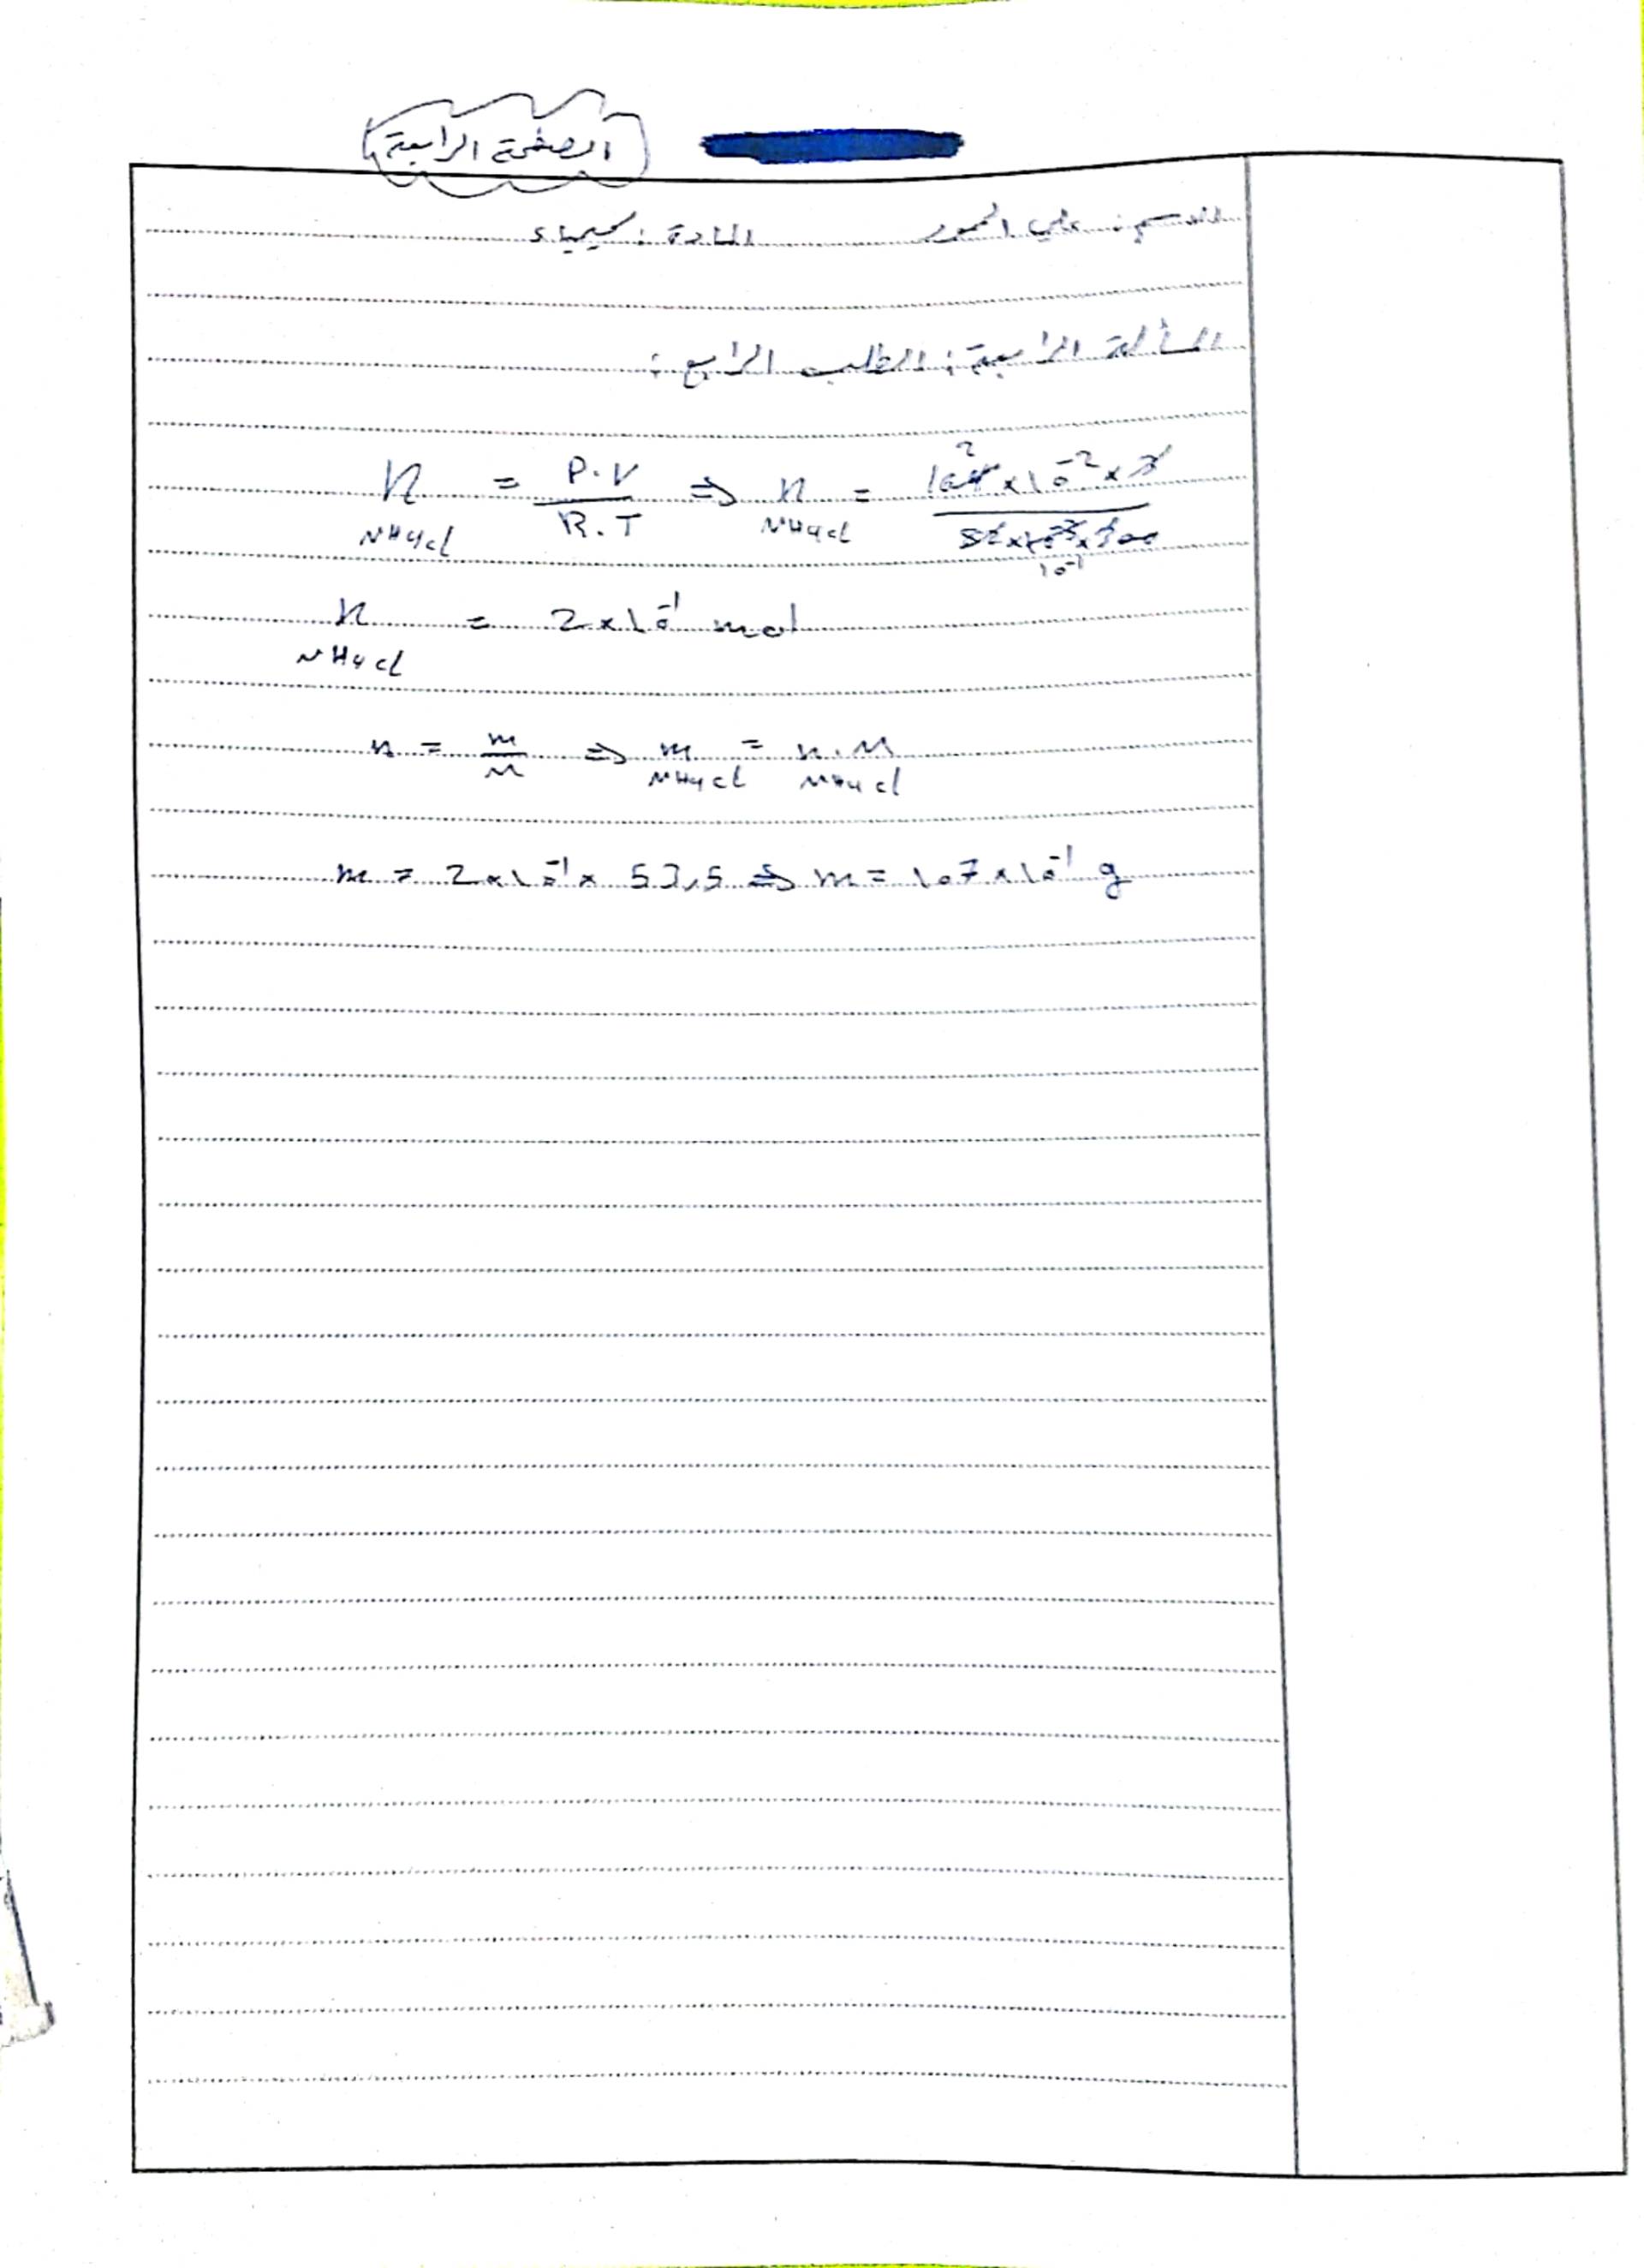 الصفحة الرابعة
الاسم: علي المادة: كيمياء
المسألة الرابعة: الطلب الرابع:
n NH4Cl = P.V / R.T ⇒ n NH4Cl = 164² × 10⁻² × 3 / 82 × 10⁻³ × 300 10⁻¹
n NH4Cl = 2 × 10⁻¹ mol
n = m / M ⇒ m NH4Cl = n . M NH4Cl
m = 2 × 10⁻¹ × 53,5 ⇒ m = 107 × 10⁻¹ g